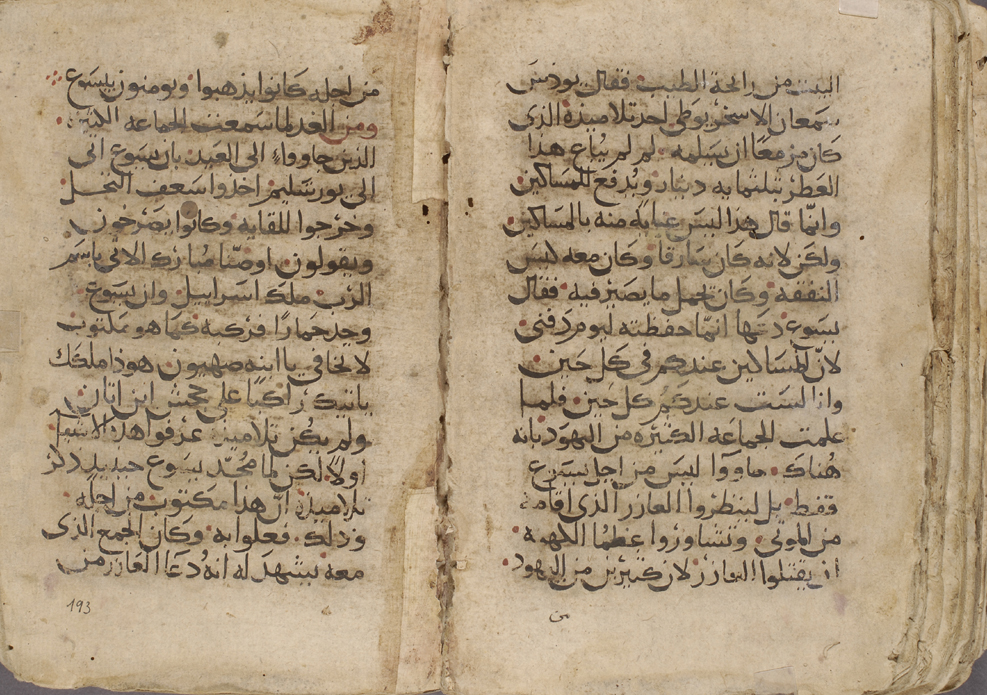 البيت من رائحة الطيب فقال يودس
سمعان الاسخريوطي احد تلاميذه الذي
كان مزمعا ان يسلمه لم لم يباع هذا
العطر بثلثمايه دينار ويدفع للمساكين
وانما قال هذا ليس عنايه منه بالمساكين
ولكن لانه كان سارقا وكان معه كيس
النفقه وكان يحمل ما يصير فيه فقال
يسوع دعها انما حفظته ليوم دفني
لان المساكين عندكم في كل حين
وانا لست عندكم كل حين فلما
علمت الجماعه الكثيره من اليهود بانه
هناك جاووا ليس من اجل يسوع
فقط بل لينظروا العازر الذي اقامه
من الموتي وتشاوروا عظما الكهنه
ان يقتلوا العازر لان كثيرين من اليهود
من اجله كانوا يذهبوا ويومنون بيسوع
ومن الغد لما سمعت الجماعه الكثيره
الذين جاووا الى العيد بان يسوع اتى
الى يورشليم اخذوا سعف النخل
وخرجوا للقايه وكانوا يصرخون
ويقولون اوصنا مبارك الاتي باسم
الرب ملك اسراييل وان يسوع
وجد حمارا فركبه كما هو مكتوب
لا تخافي يا ابنه صهيون هوذا ملكك
ياتيك راكبا على جحش ابن اتان
ولم يكن تلاميذه عرفوا هذه الاشيا
اولا لكن لما مجد يسوع حينيذ ذكر
تلاميذه ان هذا مكتوب من اجله
وذلك فعلوا به وكان الجمع الذي
معه يشهد له انه دعا العازر من
193